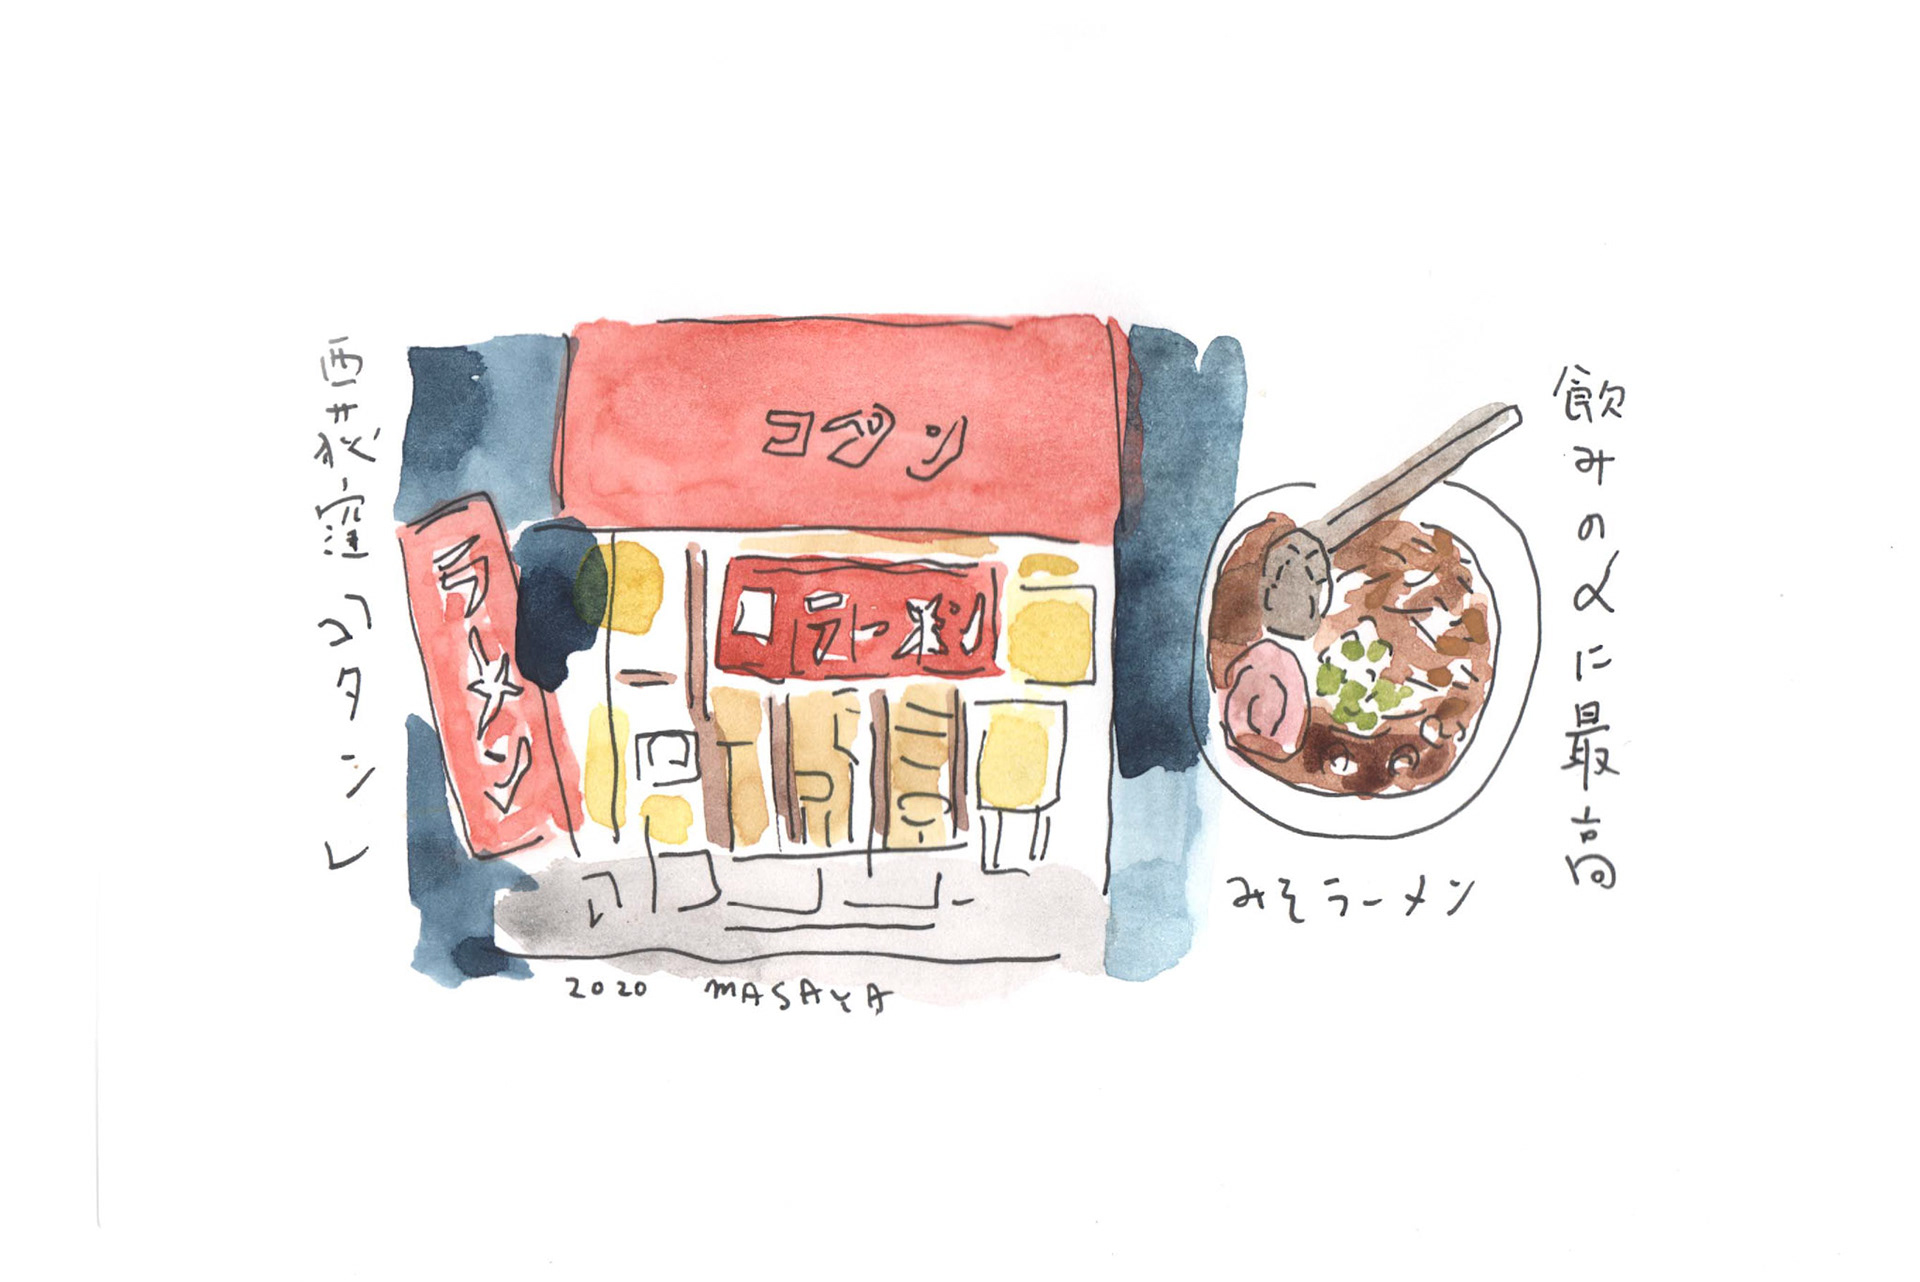 西荻窪「コタン」
コタン
ラーメン
ラーメン
飲みの〆に最高
みそラーメン
2020 MASAYA